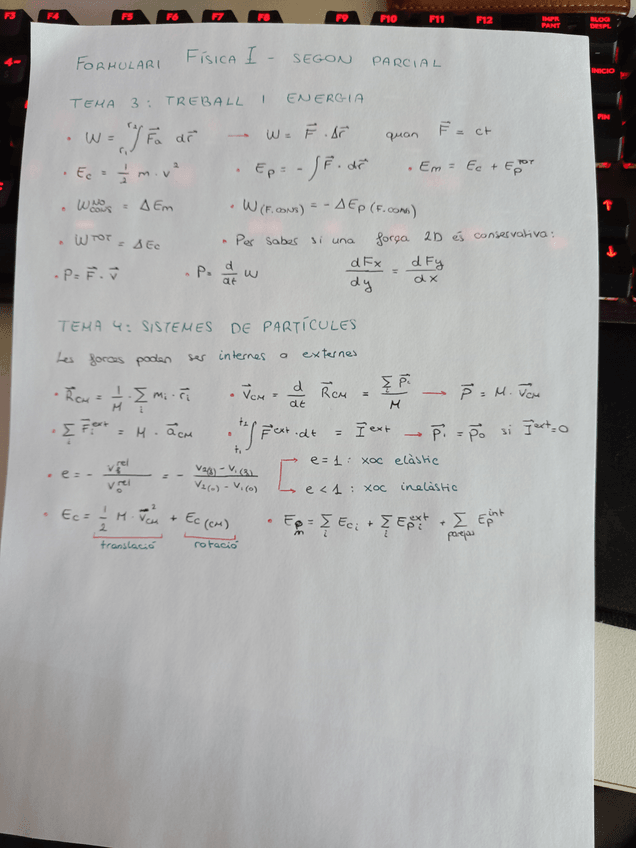 F3 F4 F5 F6 F7 F8 F9 F10 F11 F12 IMPR PANT BLOQ DESPL
INICIO
FORMULARI FÍSICA I - SEGON PARCIAL
TEMA 3: TREBALL I ENERGIA
• W = ∫_{r₁}^{r₂} F⃗a dr⃗ → W = F⃗ · Δr⃗ quan F⃗ = ct
• Ec = 1/2 m · v² • Ep = - ∫ F⃗ · dr⃗ • Em = Ec + Ep^TOT
• W^{NO CONS} = ΔEm • W(F.CONS) = - ΔEp (F.CONS)
• W^TOT = ΔEc • Per saber si una força 2D és conservativa:
• P = F⃗ · v⃗ • P = d/dt W dFx/dy = dFy/dx
TEMA 4: SISTEMES DE PARTÍCULES
Les forces poden ser internes o externes
• R⃗CM = 1/M · Σi mi · r⃗i • V⃗CM = d/dt R⃗CM = Σi p⃗i / M → P⃗ = M · V⃗CM
• Σi F⃗i^ext = M · a⃗CM • ∫_{t₁}^{t₂} F⃗^ext · dt = I⃗^ext → p⃗i = p⃗0 si I⃗^ext = 0
• e = - vf^rel / v0^rel = - (v2(f) - v1(f)) / (v2(0) - v1(0)) e = 1: xoc elàstic
e < 1: xoc inelàstic
• Ec = 1/2 M · v⃗CM² + Ec (CM) • Em = Σi Eci + Σi Epi^ext + Σparejas Ep^int
translació rotació